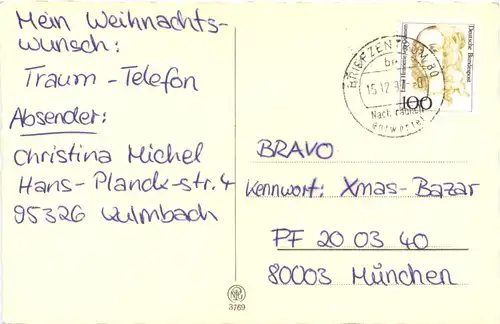 Mein Weihnachts-
wunsch:
Traum-Telefon
Absender:
Christina Michel
Hans-Planck-str.4
95326 Kulmbach
BRIEFZENTRUM 80
15.12.9
Nachträglich
entwertet
Deutsche Bundespost
100
BRAVO
Kennwort: Xmas-Bazar
PF 20 03 40
80003 München
3769